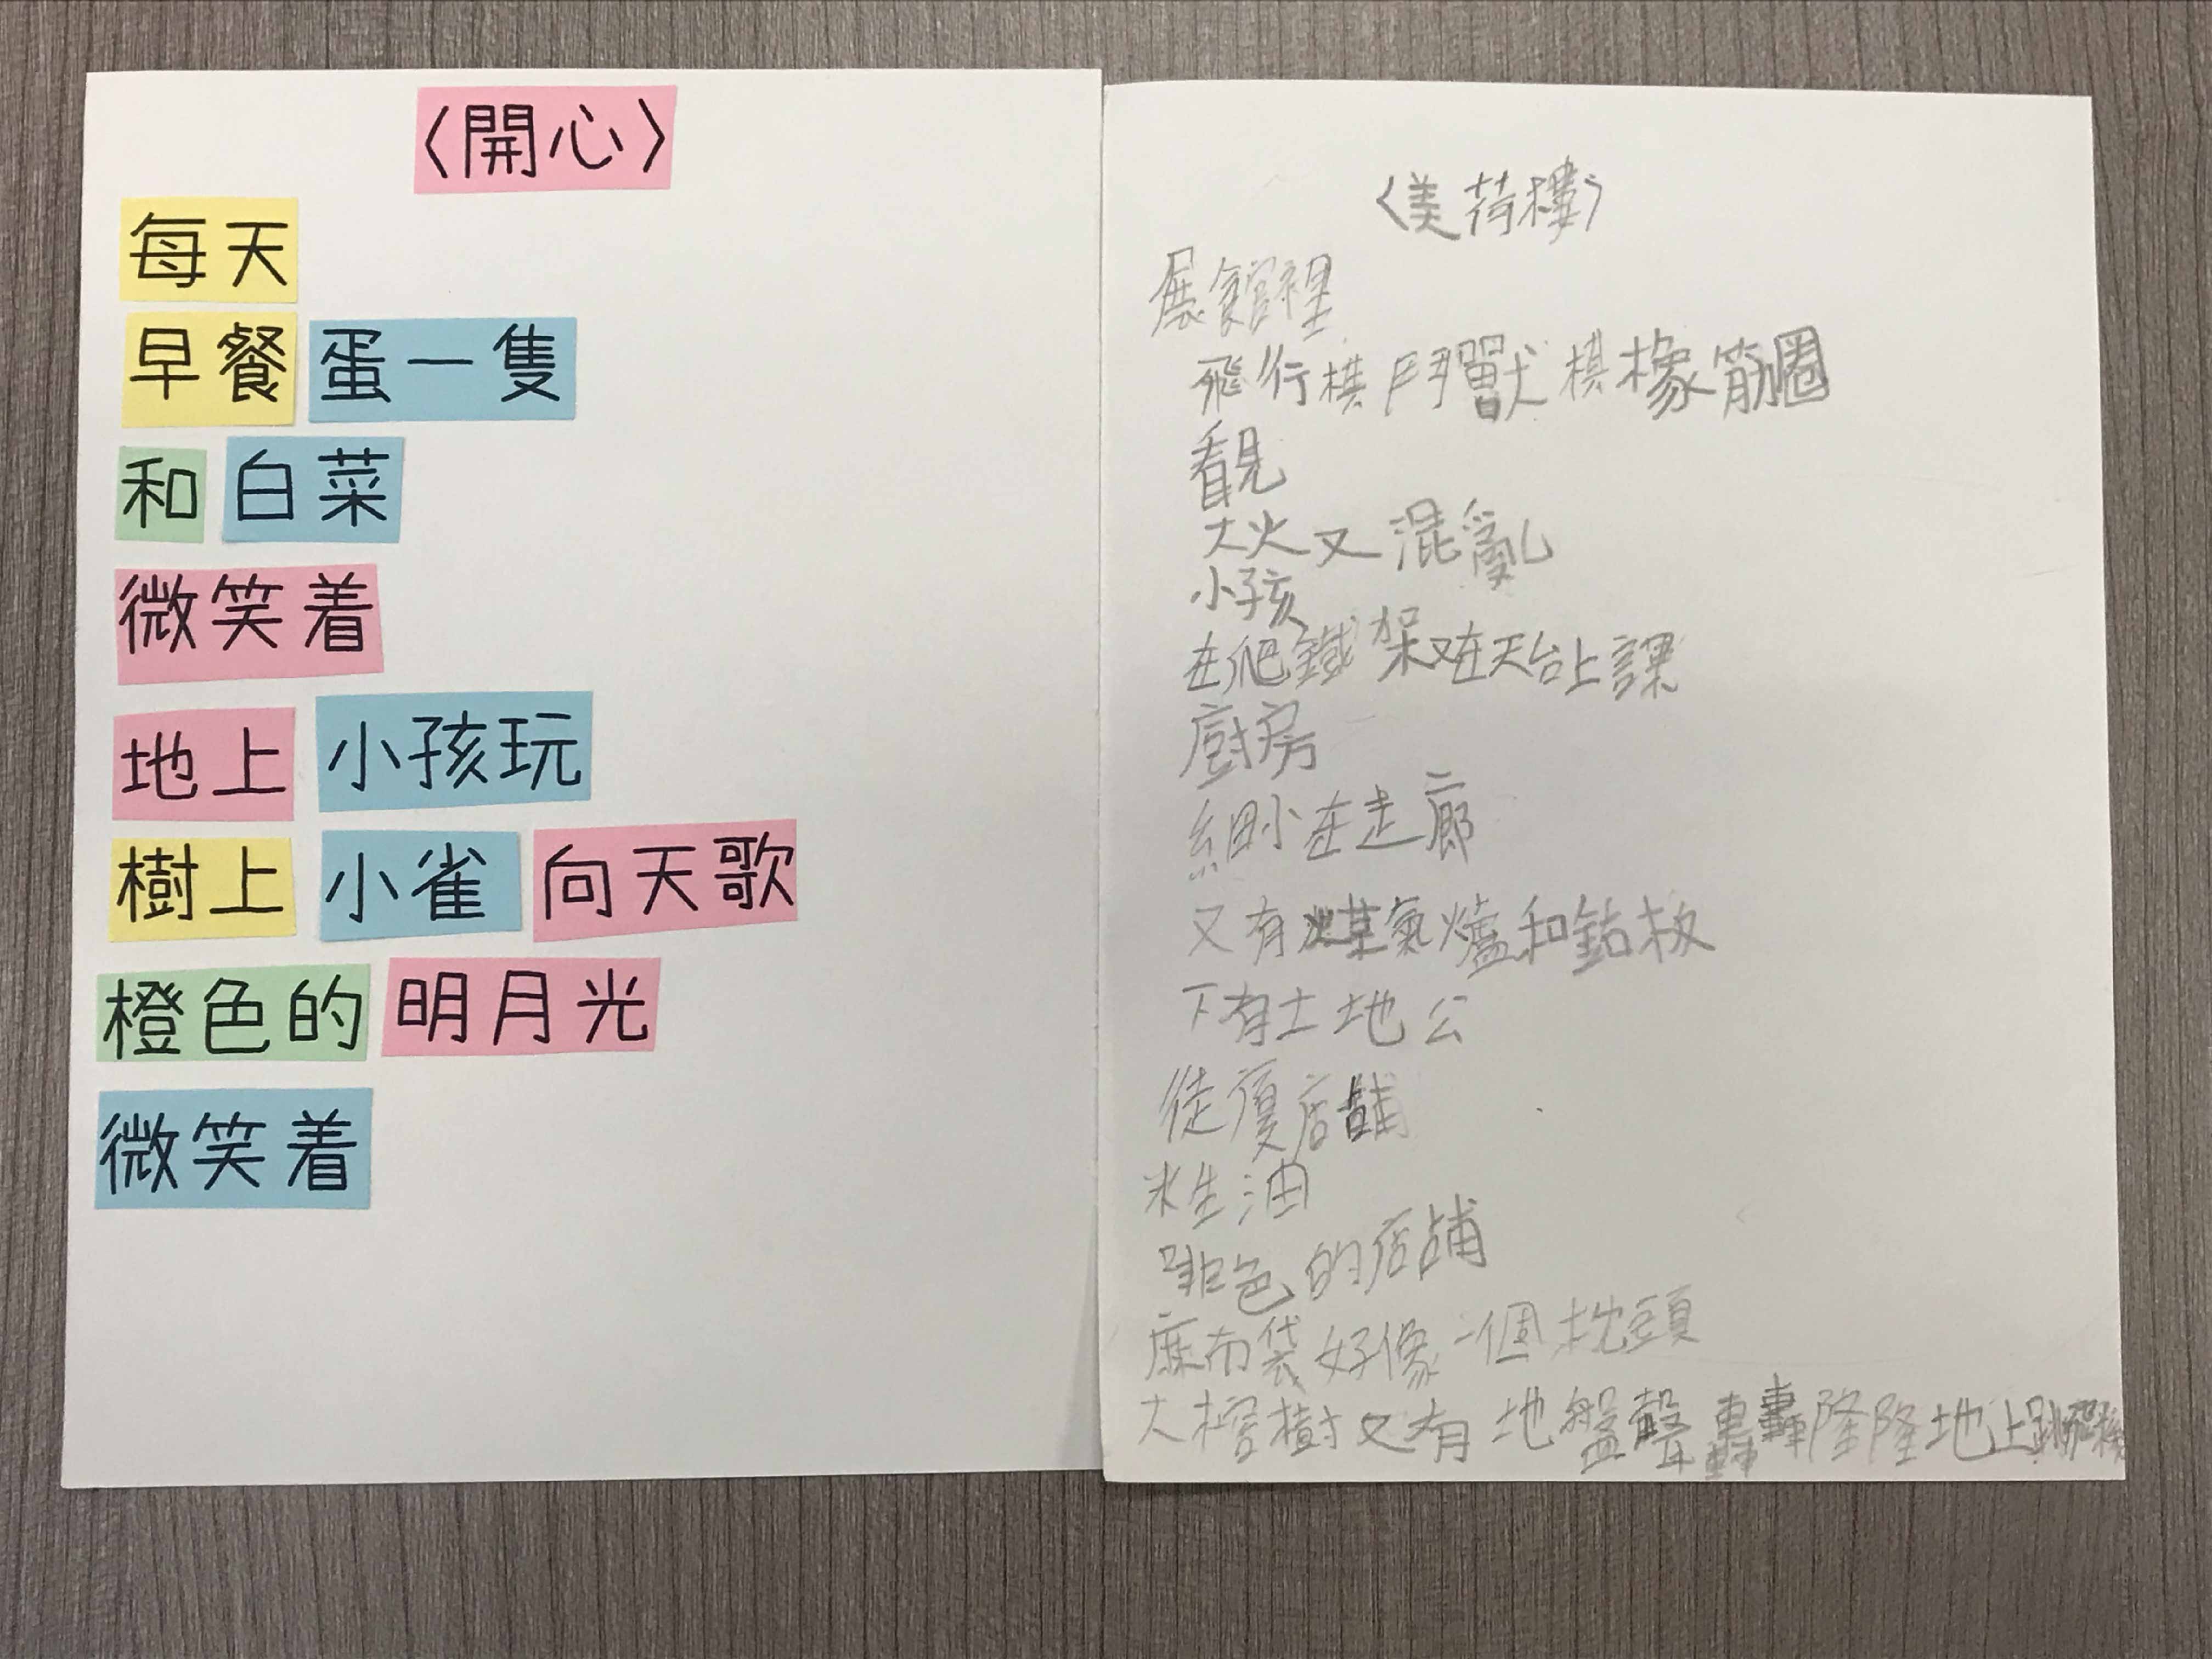 〈開心〉
每天
早餐 蛋一隻
和 白菜
微笑着
地上 小孩玩
樹上 小雀 向天歌
橙色的 明月光
微笑着
〈美荷樓〉
展館裡
飛行棋鬥獸棋橡筋圈
看見
大火又混亂
小孩
在爬鐵架又在天台上課
廚房
細小在走廊
又有煤氣爐和鉆板
下有土地公
徒復店舖
米生油
啡色的店舖
麻布袋好像一個枕頭
大榕樹又有地盤聲轟轟隆隆地上跳飛機